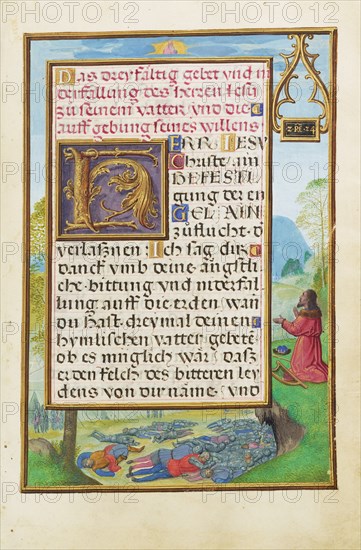 Das dreyfältig gebet vnd ni
derfallung des herren Jesu
zu seinem vatter vnd die
auffgebung seines willens
HERR IESV
Christe ain
BEFESTI
gung der en
GEL AIN
zuflucht d
verlasznen Ich sag dir
danck vmb deine ängstli
che bittung vnd niderfal
lung auff die erden wan
du hast dreymal deinen
hymlischen vatter gebete
ob es müglich wär dasz
er den kelch des bitteren ley
dens von dir näme vnd
PHOTO12